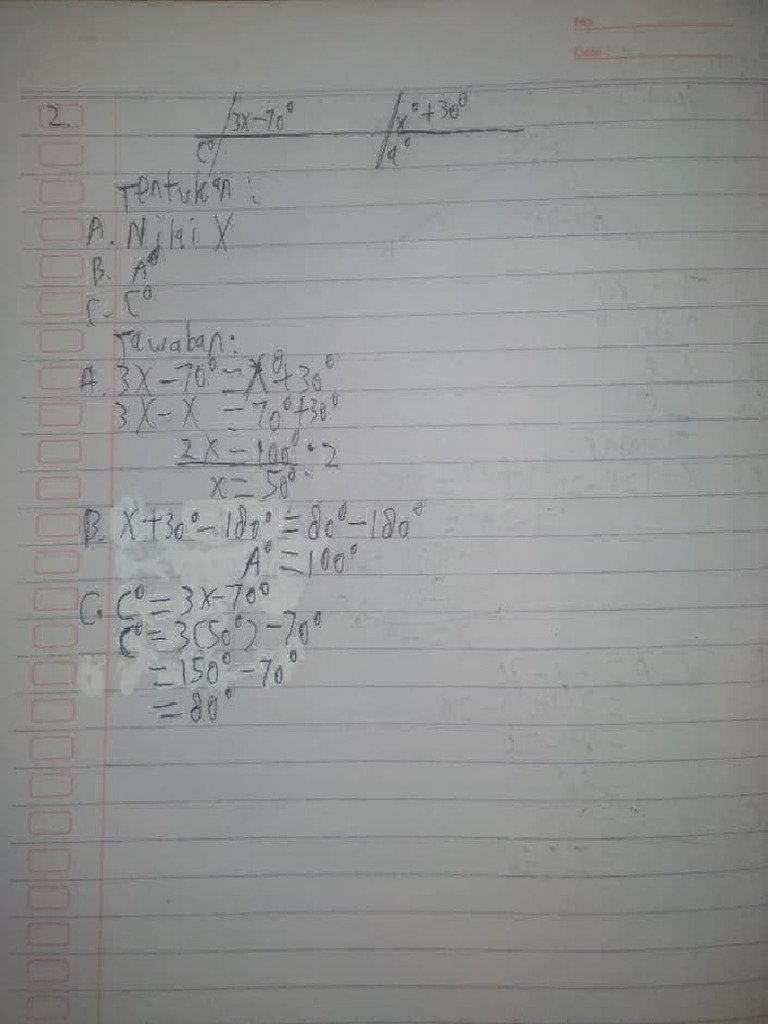 No.
Date :
2. 3x-70° x°+30°
c° a°
Tentukan :
A. Nilai X
B. A°
C. C°
Jawaban:
A. 3X-70° = X°+30°
3X-X = 70°+30°
2X = 100° : 2
x = 50°
B. X+30°-180° = 80°-180°
A° = 100°
C. C° = 3x-70°
C° = 3(50°)-70°
= 150°-70°
= 80°